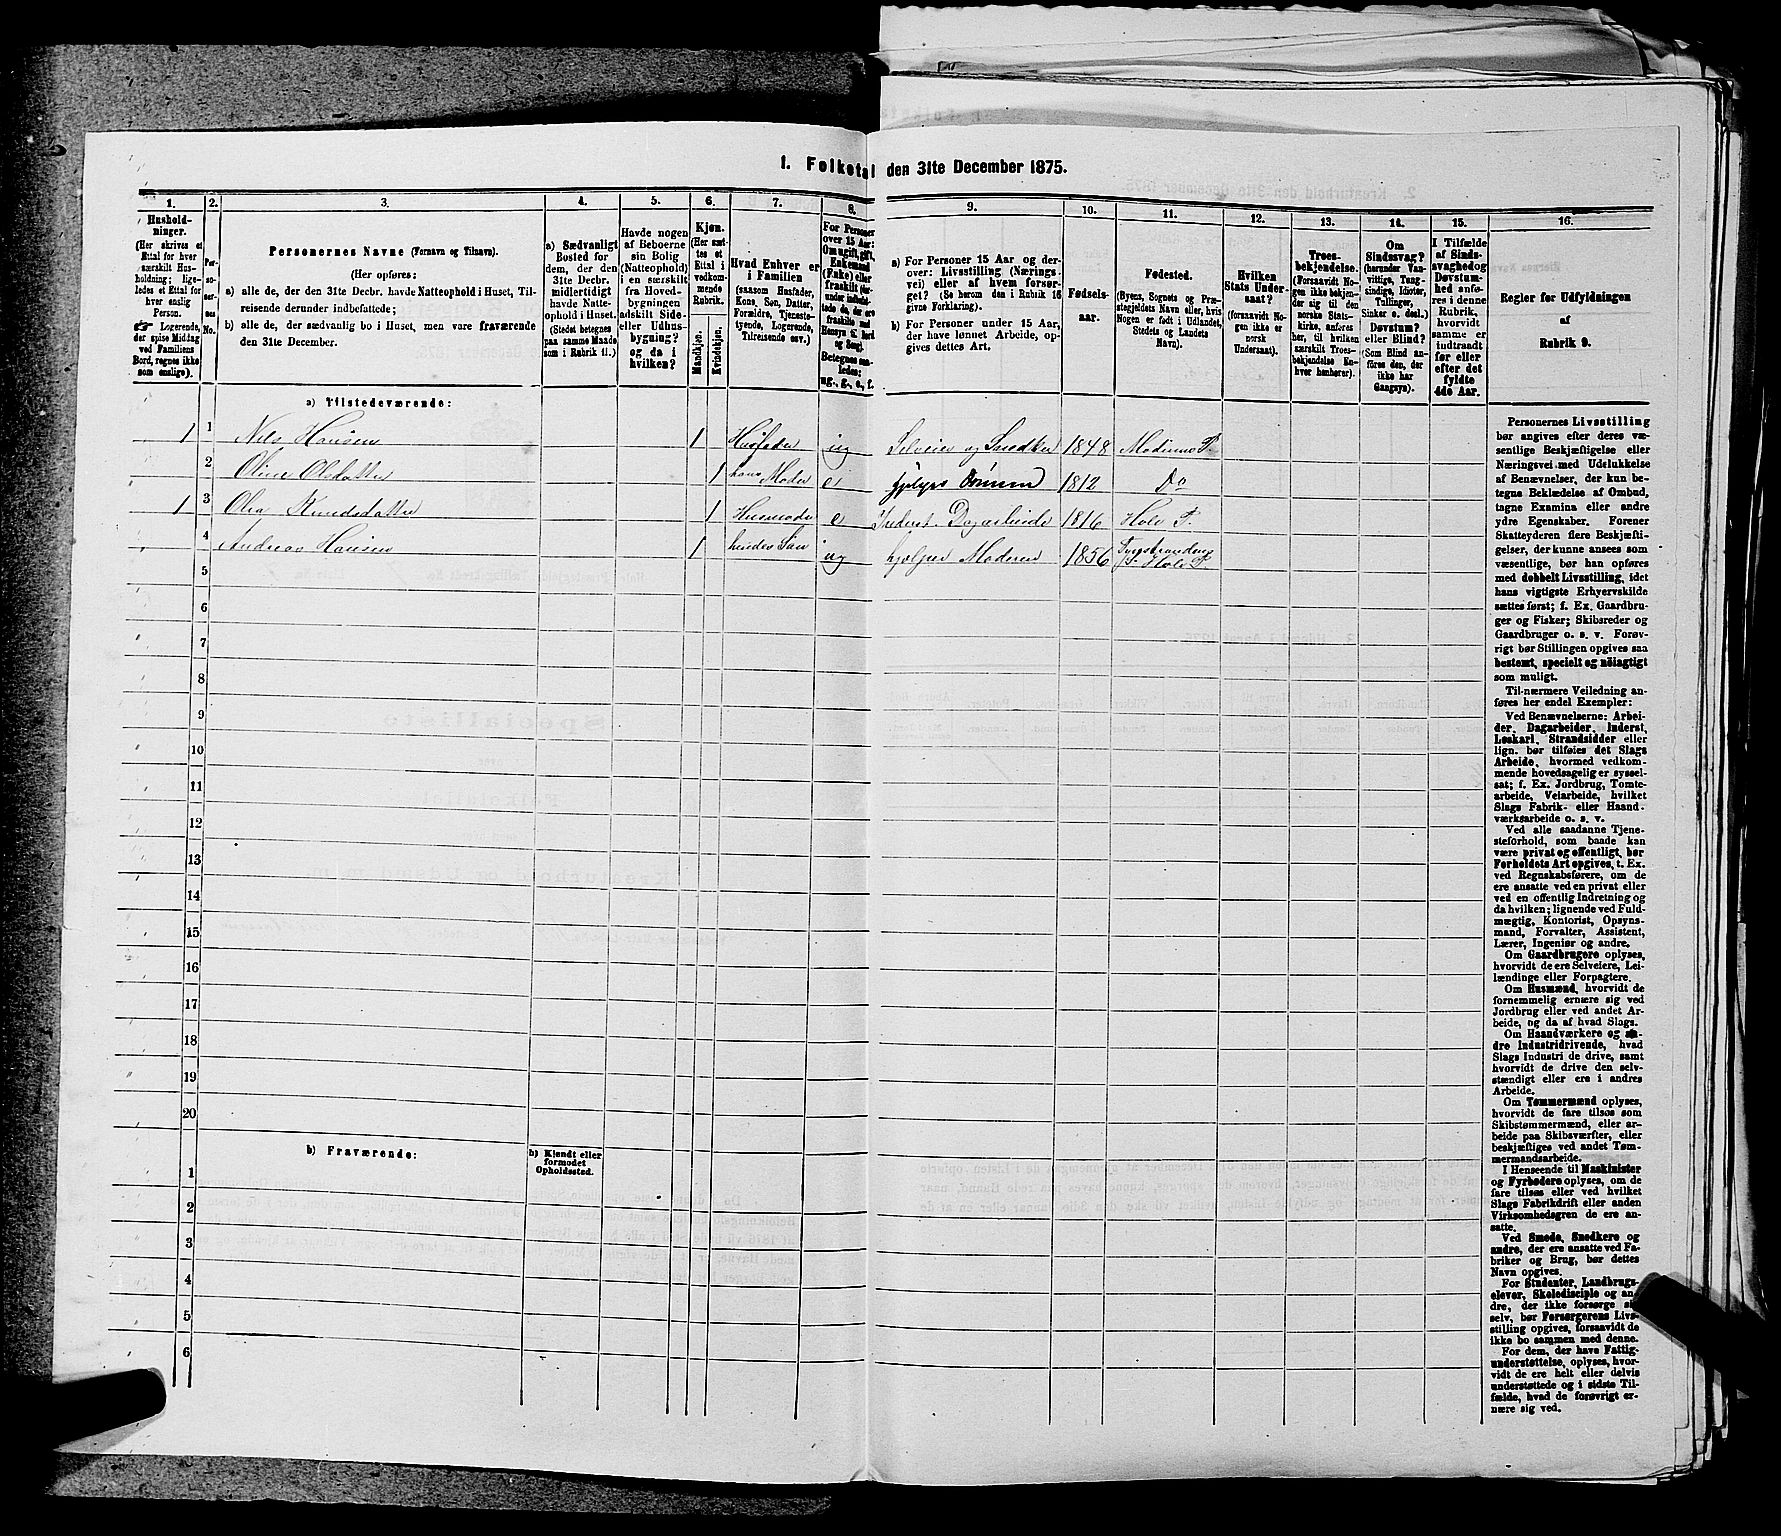 1. Folketal den 31te December 1875.
1. 2. 3. 4. 5. 6. 7. 8. 9. 10. 11. 12. 13. 14. 15. 16.
Hushold-
ninger.
(Her skrives et
Ettal for hver
særskilt Hus-
holdning; lige-
ledes et Ettal for
hver enslig
Person.
Logerende,
der spise Middag
ved Familiens
Bord, regnes ikke
som enslige).
Per-
so-
ner-
nes
No.
Personernes Navne (Fornavn og Tilnavn).
(Her opføres:
a) alle de, der den 31te Decbr. havde Natteophold i Huset, Til-
reisende derunder indbefattede;
b) alle de, der sædvanlig bo i Huset, men vare fraværende
den 31te December.
a) Sædvanligt
Bosted for
dem, der den
31te Decbr.
midlertidigt
havde Natte-
ophold i Huset.
(Stedet betegnes
paa samme Maade
som i Rubrik 11.)
Havde nogen
af Beboerne
sin Bolig
(Natteophold)
i en særskilt
fra Hoved-
bygningen
adskilt Side-
eller Udhus-
bygning?
og da i
hvilken?
Kjøn.
(Her sæt-
tes et
Ettal i
vedkom-
mende
Rubrik.
Mandkjøn.
Kvindekjøn.
Hvad Enhver er
i Familien
(saasom Husfader,
Kone, Søn, Datter,
Forældre, Tjeneste-
tyende, Logerende,
Tilreisende osv.)
For Personer
over 15 Aar:
Om ugift, gift,
Enkemand
(Enke) eller
fraskilt
Betegnes saa-
ledes:
ug., g., e., f.
a) For Personer 15 Aar og der-
over: Livsstilling (Nærings-
vei) eller af hvem forsør-
get? (Se herom den i Rubrik 16
givne Forklaring).
b) For Personer under 15 Aar,
der have lønnet Arbeide, op-
gives dettes Art.
Fødsels-
aar.
Fødested.
(Byens, Sognets og Præ-
stegjeldets Navn eller, hvis
Nogen er født i Udlandet,
Stedets og Landets
Navn).
Hvilken
Stats Under-
saat?
(forsaavidt No-
gen ikke er
norsk
Undersaat).
Troes-
bekjendelse.
(Forsaavidt No-
gen ikke bekjen-
der sig til den
norske Stats-
kirke, anføres
her, til hvilken
særskilt Troes-
bekjendelse En-
hver henhører).
Om
Sindssvag?
(herunder Van-
vittige, Tung-
sindige, Idioter,
Tullinger,
Sinker o. desl.)
Døvstum?
eller Blind?
(Som Blind an-
føres den, der
ikke har
Gangsyn).
I Tilfælde
af Sinds-
svaghed og
Døvstum-
hed anfø-
res i denne
Rubrik,
hvorvidt
samme er
indtraadt
før eller
efter det
fyldte
4de Aar.
Regler for Udfyldningen
af
Rubrik 9.
a) Tilstedeværende:
1 1 Nils Hansen 1 Husfader ug Selveier og Snedker 1848 Modums P.
2 Oline Olsdatter 1 hans Moder e hjælper Sønnen 1812 Do
1 3 Olea Knudsdatter 1 Husmoder e Inderst Dagarbeide 1816 Hole P.
4 Andreas Hansen 1 hendes Søn ug hjælper Moderen 1856 Tyristrandens S. Hole P.
5
6
7
8
9
10
11
12
13
14
15
16
17
18
19
20
b) Fraværende:
b) Kjendt eller
formodet
Opholdssted.
1
2
3
4
5
6
Personernes Livsstilling
bør angives efter deres væ-
sentlige Beskjæftigelse eller
Næringsvei med Udelukkelse
af Benævnelser, der kun be-
tegne Beklædelse af Ombud,
tagne Examina eller andre
ydre Egenskaber. Forener
Skatteyderen flere Beskjæfti-
gelser, der kunne ansees som
væsentlige, bør han opføres
med dobbelt Livsstilling, idet
hans vigtigste Erhvervskilde
sættes først; f. Ex. Gaardbru-
ger og Fisker; Skibsreder og
Gaardbruger o. s. v. Forøv-
rigt bør Stillingen opgives saa
bestemt, specielt og nöiagtigt
som muligt.
Til nærmere Veiledning an-
føres her endel Exempler:
Ved Benævnelserne: Arbei-
der, Dagarbeider, Inderst,
Løskarl, Strandsidder eller
lign. bør tilføies det Slags
Arbeide, hvormed vedkom-
mende hovedsagelig er syssel-
sat; f. Ex. Jordbrug, Tomte-
arbeide, Veiarbeide, hvilket
Slags Fabrik- eller Haand-
værksarbeide o. s. v.
Ved alle saadanne Tjene-
steforhold, som baade kan
være privat og offentligt, bør
Forholdets Art opgives, t. Ex.
ved Regnskabsførere, om de
ere ansatte ved en privat eller
ved en offentlig Indretning og
da hvilken; lignende ved Fuld-
mægtig, Kontorist, Opsyns-
mand, Forvalter, Assistent,
Lærer, Ingeniør og andre.
Om Gaardbrugere oplyses,
hvorvidt de ere Selveiere, Lei-
lændinge eller Forpagtere.
Om Husmænd, hvorvidt de
fornemmelig ernære sig ved
Jordbrug eller ved andet Ar-
beide, og da af hvad Slags.
Om Haandværkere og an-
dre Industridrivende, hvad
Slags Industri de drive, samt
hvorvidt de drive den selv-
stændigt eller ere i andres
Arbeide.
Om Tømmermænd oplyses,
hvorvidt de fare tilsøs som
Skibstømmermænd, eller ar-
beide paa Skibsværfter, eller
beskjæftiges ved andet Tøm-
mermandsarbeide.
I Henseende til Maskinister
og Fyrbødere oplyses, om de
fare tilsøs eller ved hvilket
Slags Fabrikdrift eller anden
Virksomhedsgren de ere an-
satte.
Ved Smede, Snedkere og
andre, der ere ansatte ved Fa-
briker og Brug, bør dettes
Navn opgives.
For Studenter, Landbrugs-
elever, Skoledisciple og an-
dre, der ikke forsørge sig
selv, bør Forsørgerens Livs-
stilling opgives, forsaavidt de
ikke bo sammen med denne.
For dem, der have Fattig-
understøttelse, oplyses, hvor-
vidt de ere helt eller delvis
understøttede og i sidste Til-
fælde, hvad de forøvrigt er-
nære sig ved.